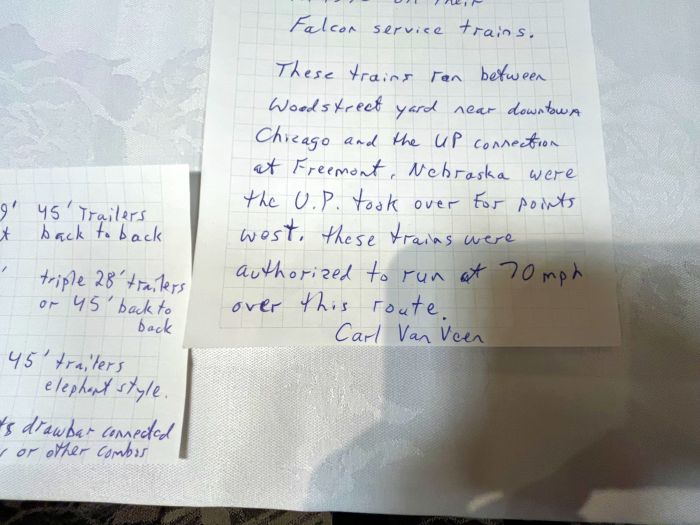 on their
Falcon service trains.
These trains ran between
Woodstreet yard near downtown
Chicago and the UP connection
at Freemont, Nebraska were
the U.P. took over for points
west. these trains were
authorized to run at 70 mph
over this route.
Carl Van Veen
9' 45' Trailers
back to back
triple 28' trailers
or 45' back to
back
45' trailers
elephant style.
drawbar connected
or other combos